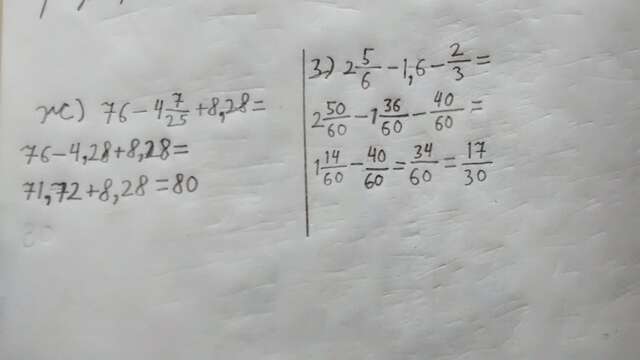 ж) 76 - 4 7/25 + 8,28 =
76 - 4,28 + 8,28 =
71,72 + 8,28 = 80
з) 2 5/6 - 1,6 - 2/3 =
2 50/60 - 1 36/60 - 40/60 =
1 14/60 - 40/60 = 34/60 = 17/30